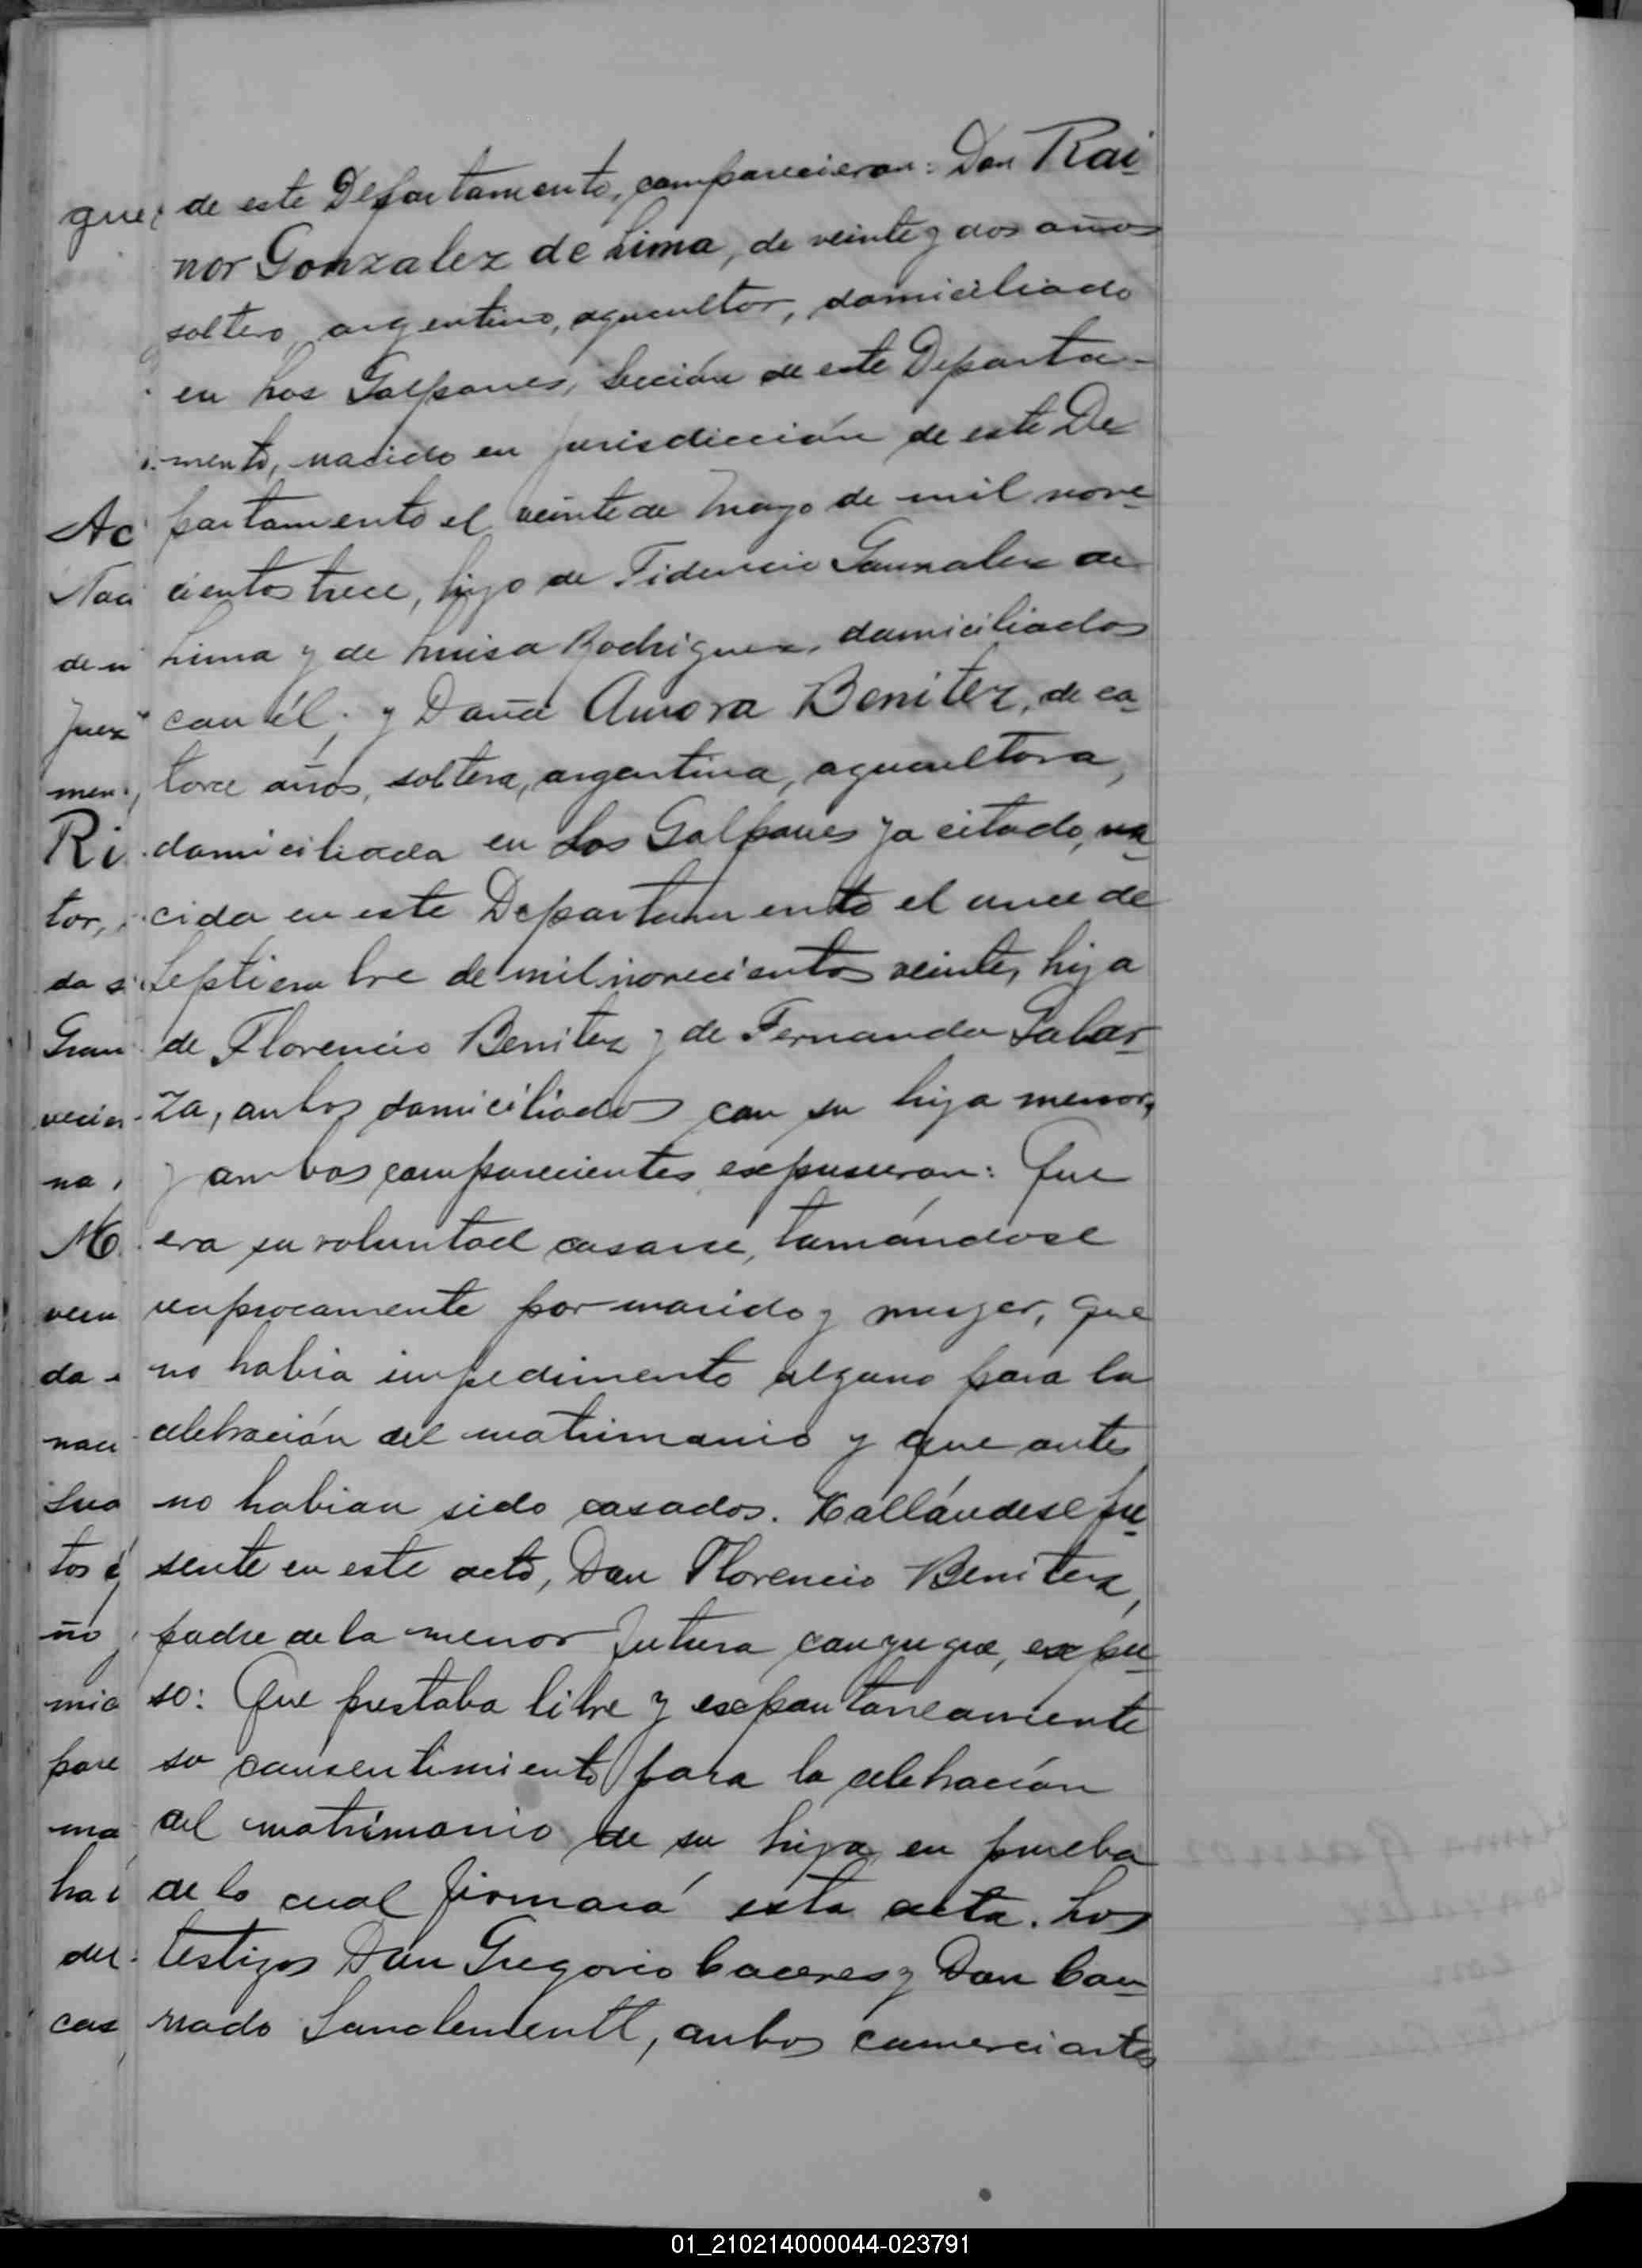 de este Departamento, comparecieron: Don Rai
nor Gonzalez de Lima, de veinte y dos años
soltero, argentino, agricultor, domiciliado
en Los Galpones, Sección de este Departa-
mento, nacido en jurisdicción de este De
partamento el veinte de Mayo de mil nove
cientos trece, hijo de Fidencio Gonzalez de
Lima y de Luisa Rodriguez, domiciliados
con él; y Doña Aurora Benitez, de ca
torce años, soltera, argentina, agricultora,
domiciliada en Los Galpones ya citado, na
cida en este Departamento el once de
Septiembre de mil novecientos veinte, hija
de Florencio Benitez y de Fernanda Galar
za, ambos domiciliados con su hija menor,
y ambos comparecientes expusieron: Que
era su voluntad casarse, tomándose
reciprocamente por marido y mujer, que
no habia impedimento alguno para la
celebración del matrimonio y que antes
no habian sido casados. Hallándose pre
sente en este acto, Don Florencio Benitez,
padre de la menor futura conyuge, expu
so: Que prestaba libre y expontaneamente
su consentimiento para la celebración
del matrimonio de su hija en prueba
de lo cual firmará esta acta. Los
testigos Don Gregorio Caceres y Don Con
rado ambos comerciantes
que
Ac
Naci
de
Juez
men
Ri
tor,
da
Gran
vecin
na
M
vein
da
naci
Sua
tos
ño
mio
pare
ma
ha
del
cas
01_210214000044-023791